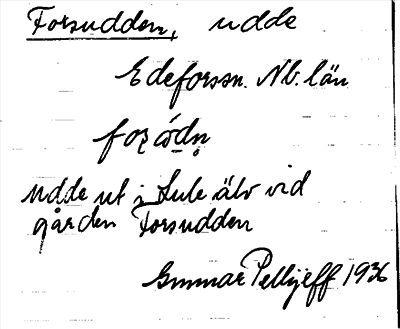 Forsudden, udde
Edeforssn. Nb. län
udde ut i Lule älv vid
gården Forsudden
Gunnar Pellijeff 1936